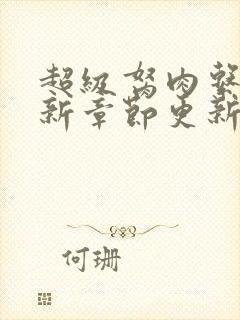 超級 肉
新章節更新
何珊